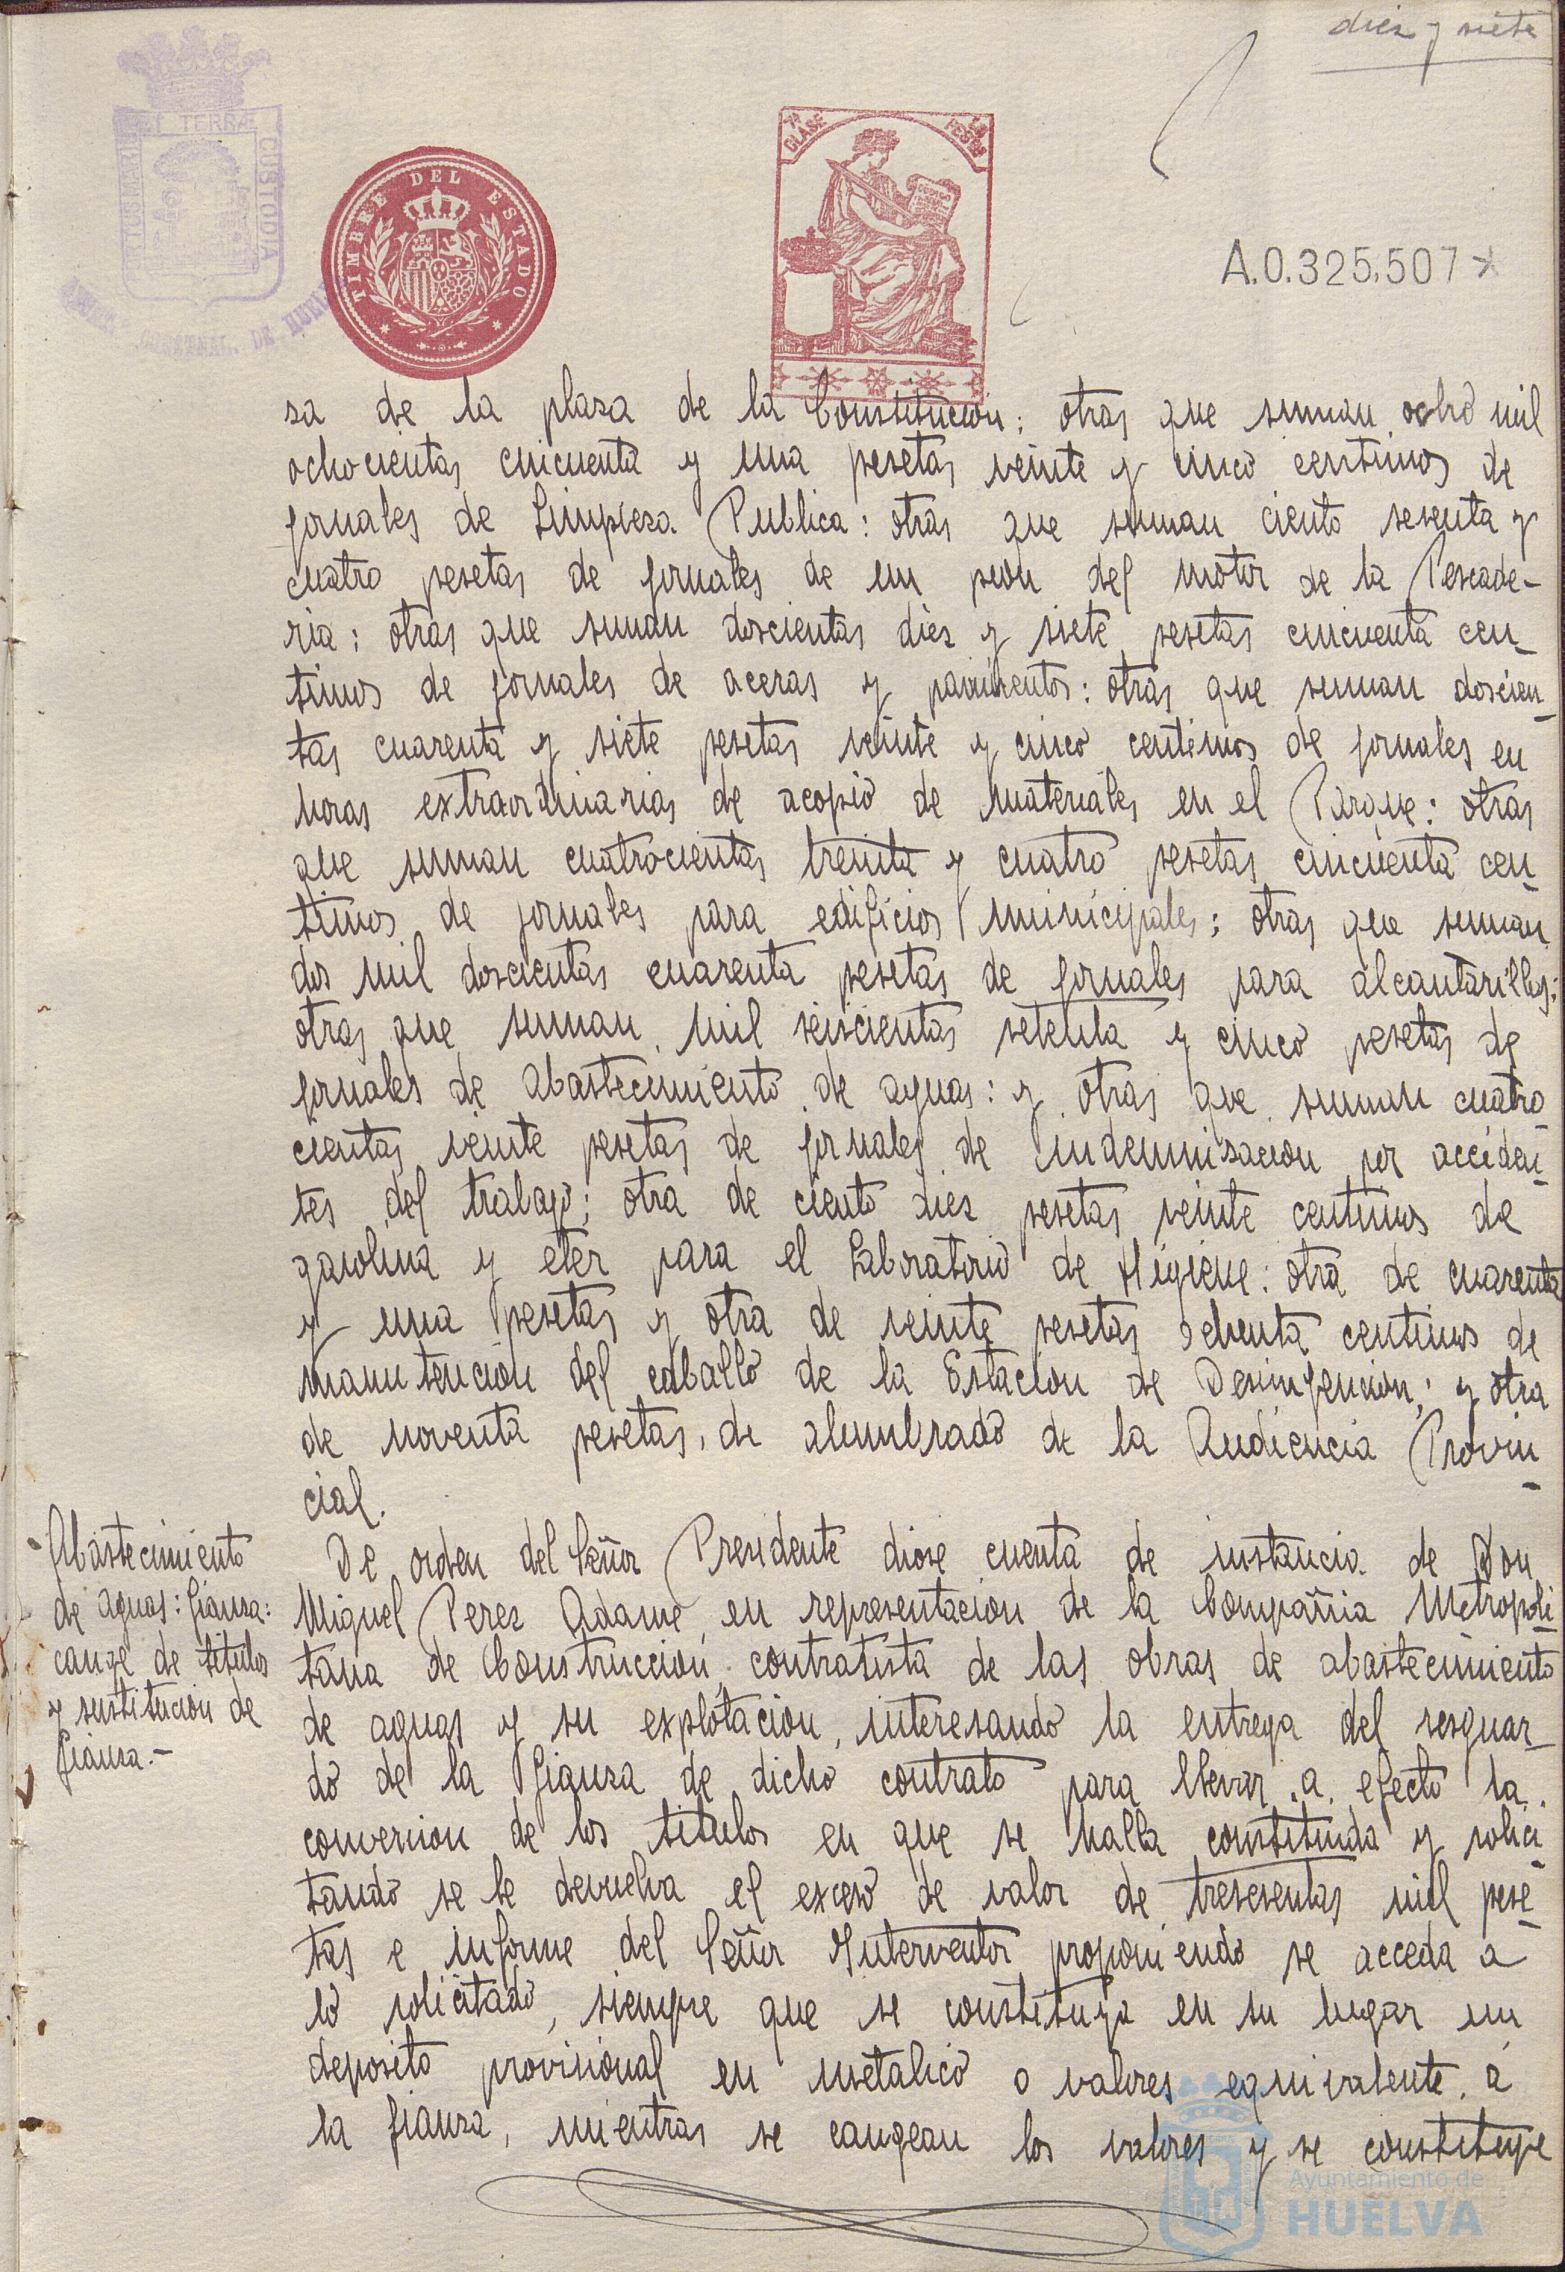 diez y siete
TERRÆ
CUSTODIA
TIMBRE DEL ESTADO
CLASE
A.0.325,507
za de la plaza de la Constitucion; otras que suman ocho mil
ochocientas cincuenta y una pesetas veinte y cinco centimos de
jornales de Limpieza Publica: otras que suman ciento sesenta y
cuatro pesetas de jornales de un peon del motor de la Pescade-
ria: otras que suman doscientas diez y siete pesetas cincuenta cen-
timos de jornales de aceras y pavimentos: otras que suman doscien-
tas cuarenta y siete pesetas veinte y cinco centimos de jornales en
horas extraordinarias de acopio de materiales en el Parque: otras
que suman cuatrocientas treinta y cuatro pesetas cincuenta cen-
timos de jornales para edificios municipales; otras que suman
dos mil doscientas cuarenta pesetas de jornales para alcantarillas;
otras que suman mil seiscientas setenta y cinco pesetas de
jornales de abastecimiento de aguas: y otras que suman cuatro-
cientas veinte pesetas de jornales de indemnizacion por acciden-
tes del trabajo; otra de ciento diez pesetas veinte centimos de
gasolina y eter para el Laboratorio de Higiene: otra de cuarenta
y una pesetas y otra de veinte pesetas ochenta centimos de
manutencion del caballo de la Estacion de Desinfeccion; y otra
de noventa pesetas, de alumbrado de la Audiencia Provin-
cial.
Abastecimiento
de aguas: fianza:
cange de titulos
y sustitucion de
fianza.-
De orden del Señor Presidente diose cuenta de instancia de Don
Miguel Perez Adame en representacion de la Compañia Metropoli-
tana de Construccion, contratista de las obras de abastecimiento
de aguas y su explotacion, interesando la entrega del resguar-
do de la fianza de dicho contrato para llevar a efecto la
conversion de los titulos en que se halla constituida y solici-
tando se le devuelva el exceso de valor de tresescentas mil pese-
tas e informe del Señor Interventor proponiendo se acceda a
lo solicitado, siempre que se constituya en su lugar un
deposito provisional en metalico o valores equivalente á
la fianza, mientras se cangean los valores y se constituye
Ayuntamiento de
HUELVA